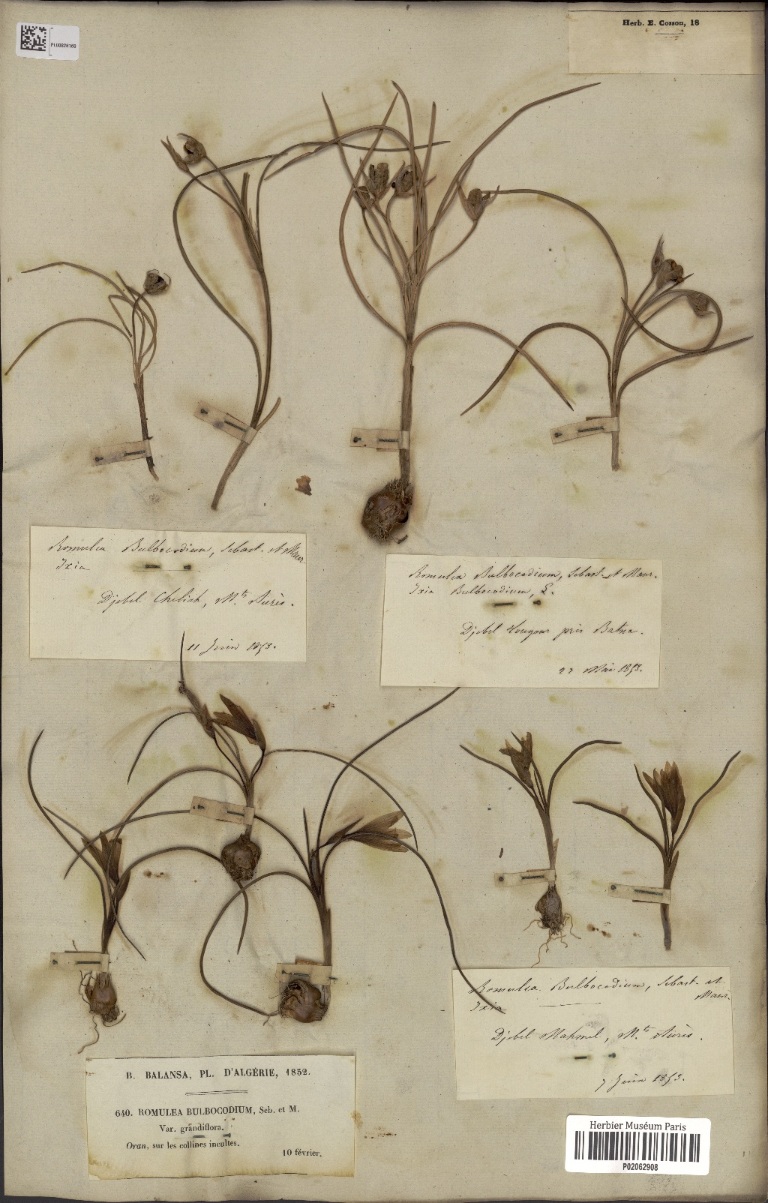 P02062908
Herb. E. Cosson, 18
Romulea Bulbocodium, Sebast. et Maur.
Ixia
Djebel Cheliah, Mts Aurès.
11 Juin 1853.
Romulea Bulbocodium, Sebast. et Maur.
Ixia Bulbocodium, L.
Djebel Tougour près Batna.
23 Mai 1853.
Romulea Bulbocodium, Sebast. et
Maur.
Ixia
Djebel Mahmel, Mts Aurès.
7 Juin 1853.
B. BALANSA, PL. D'ALGÉRIE, 1852.
640. ROMULEA BULBOCODIUM, Seb. et M.
Var. grandiflora.
Oran, sur les collines incultes.
10 février.
Herbier Muséum Paris
P02062908